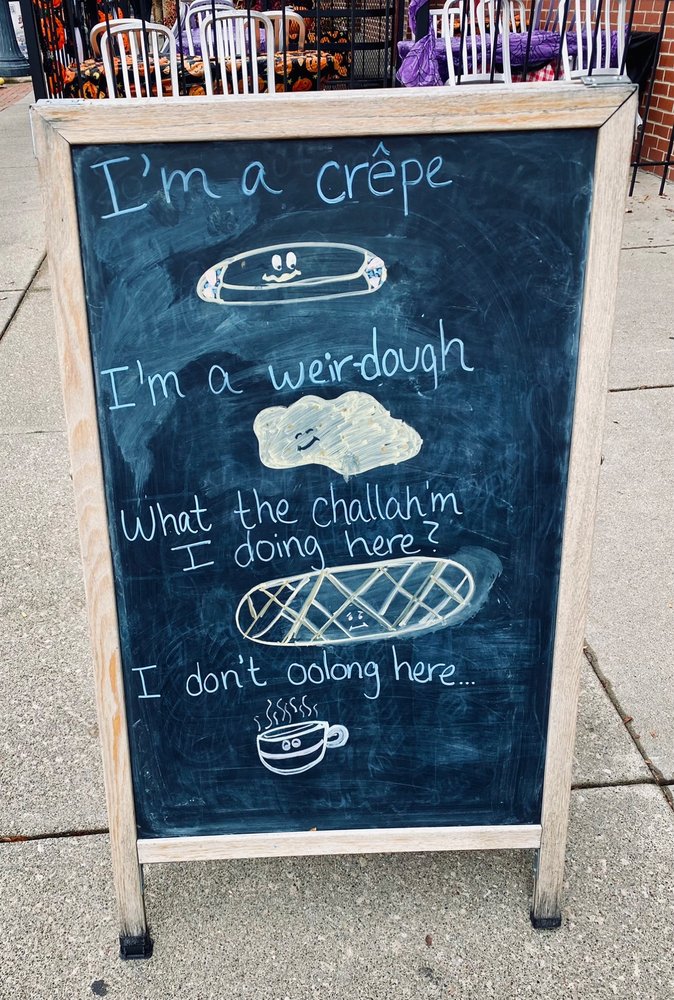 I'm a crêpe
I'm a weir-dough
What the challah'm
I doing here?
I don't oolong here...